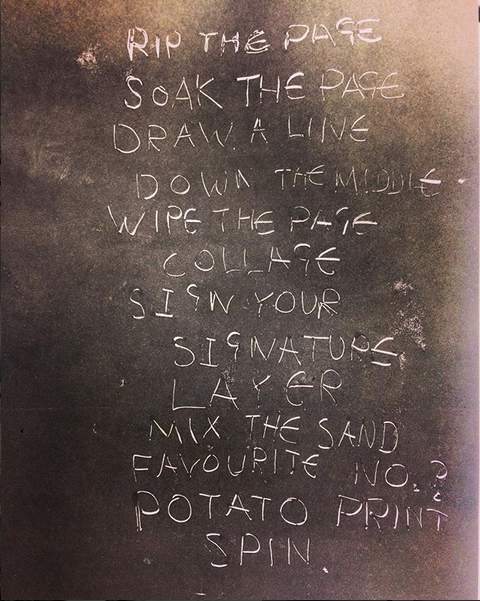 RIP THE PAGE
SOAK THE PAGE
DRAW A LINE
DOWN THE MIDDLE
WIPE THE PAGE
COLLAGE
SIGN YOUR
SIGNATURE
LAYER
MIX THE SAND
FAVOURITE NO.?
POTATO PRINT
SPIN.